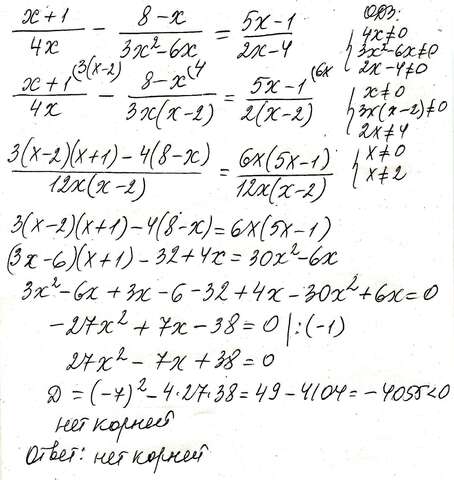 (x+1)/(4x) − (8−x)/(3x²−6x) = (5x−1)/(2x−4)
ОДЗ:
{ 4x≠0
3x²−6x≠0
2x−4≠0
(x+1)/(4x) ^(3(x−2) − (8−x)/(3x(x−2)) ^(4 = (5x−1)/(2(x−2)) ^(6x
{ x≠0
3x(x−2)≠0
2x≠4
{ x≠0
x≠2
(3(x−2)(x+1)−4(8−x))/(12x(x−2)) = (6x(5x−1))/(12x(x−2))
3(x−2)(x+1)−4(8−x)=6x(5x−1)
(3x−6)(x+1)−32+4x=30x²−6x
3x²−6x+3x−6−32+4x−30x²+6x=0
−27x²+7x−38=0 |:(−1)
27x²−7x+38=0
D=(−7)²−4·27·38=49−4104=−4055<0
нет корней
Ответ: нет корней